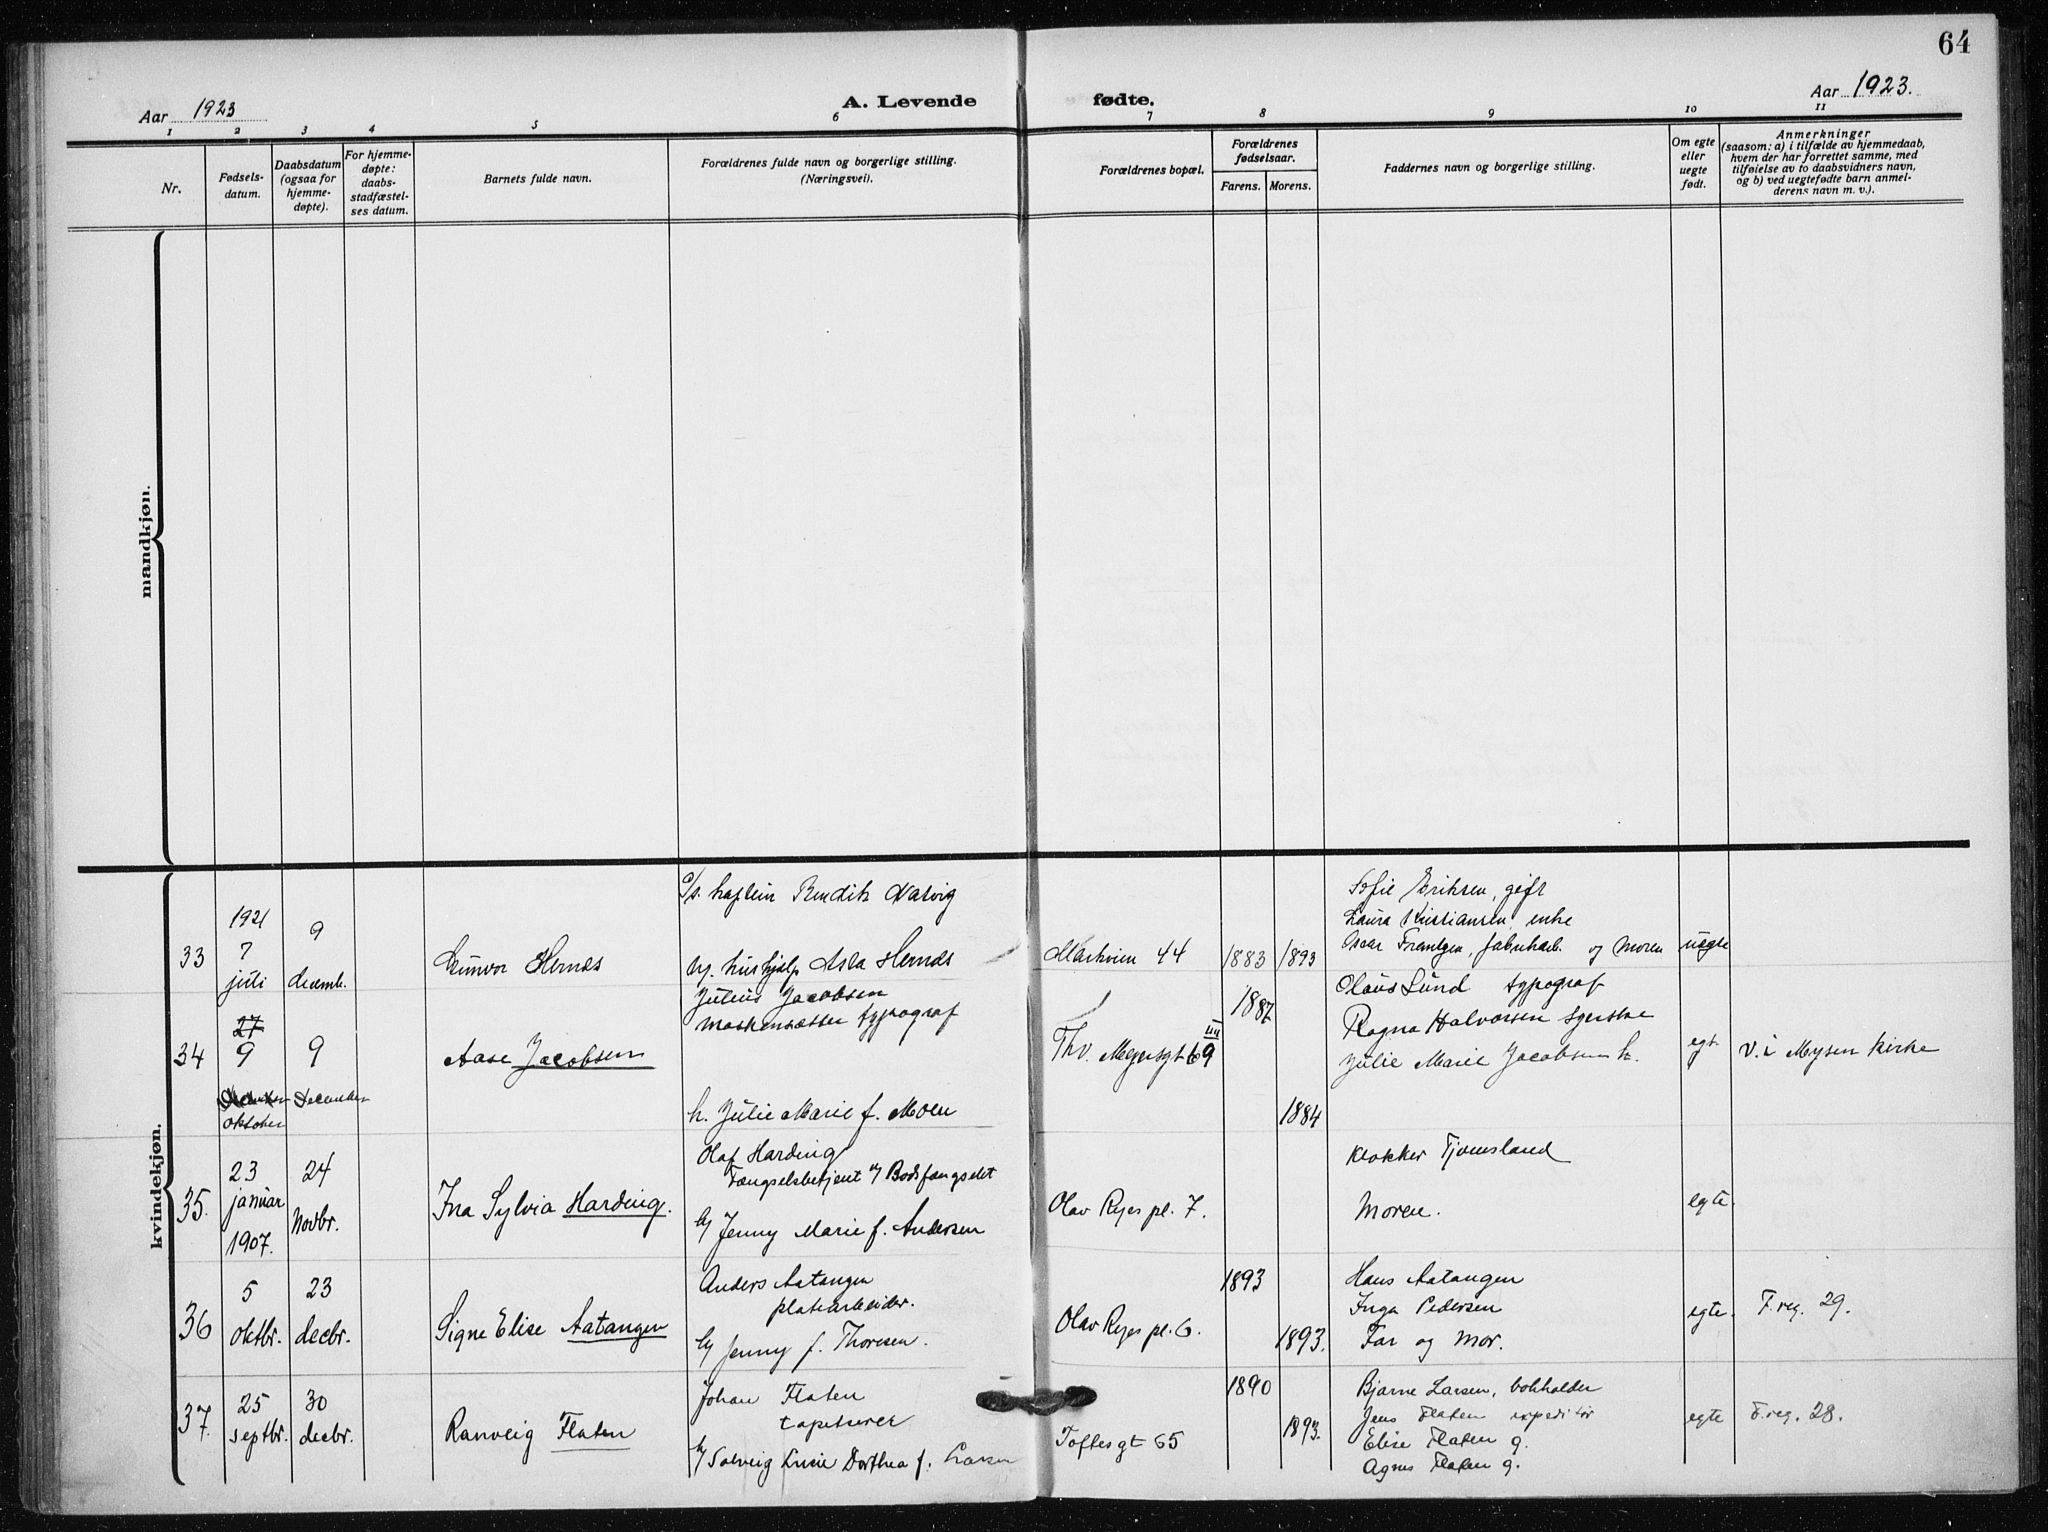 64
Aar 1923
A. Levende
fødte.
Aar 1923.
1 2 3 4 5 6 7 8 9 10 11
Nr.
Fødsels-
datum.
Daabsdatum
(ogsaa for
hjemme-
døpte).
For hjemme-
døpte:
daabs-
stadfæstel-
ses datum.
Barnets fulde navn.
Forældrenes fulde navn og borgerlige stilling.
(Næringsvei).
Forældrenes bopæl.
Forældrenes
fødselsaar.
Farens. Morens.
Faddernes navn og borgerlige stilling.
Om egte
eller
uegte
født.
Anmerkninger
(saasom: a) i tilfælde av hjemmedaab,
hvem der har forrettet samme, med
tilføielse av to daabsvidners navn,
og b) ved uegtefødte barn anmel-
derens navn m. v.).
mandkjøn.
kvindekjøn.
33
1921
7
juli
9
decemb.
Gunvor Hernes
kaptein Bendik
Ug. hushjælp Asla Hernes
Markveien 44
1883
1893
Sofie Eriksen, gift
Laura Kristiansen, enke
Oscar Frantzen, fabrikarb. og Moren
uegte
34
27
9
December
oktober
9
December
Aase Jacobsen
Julius Jacobsen
Maskinsætter typograf
h. Julie Marie f. Moen
Thv. Meyersgt 69 III
1887
1884
Claus Lund typograf
Ragna Halvorsen syerske
Julie Marie Jacobsen h.
egt.
V. i Mysen kirke
35.
23
januar
1907.
24
Novbr.
Ina Sylvia Harding.
Olaf Harding
Fængselsbetjent v/ Bodsfængslet
Jenny Marie f. Andersen
Olav Ryes pl. 7.
klokker Tjomsland
Moren.
egte.
36
5
oktbr.
23
decbr.
Signe Elise Aatangen
Anders Aatangen
platearbeider.
Jenny f. Thoresen.
Olav Ryes pl. 6.
1893
1893.
Hans Aatangen
Inga Pedersen
Far og Mor.
egte.
F. reg. 29.
37.
25
septbr.
30
decbr.
Ranveig Flaten
Johan Flaten
tapetserer
Solveig Lucie Dorthea f. Larsen
Toftesgt 65
1890
1893.
Bjarne Larsen, bokholder
Jens Flaten expeditør
Elise Flaten g.
Agnes Flaten g.
egte
F. reg. 28.